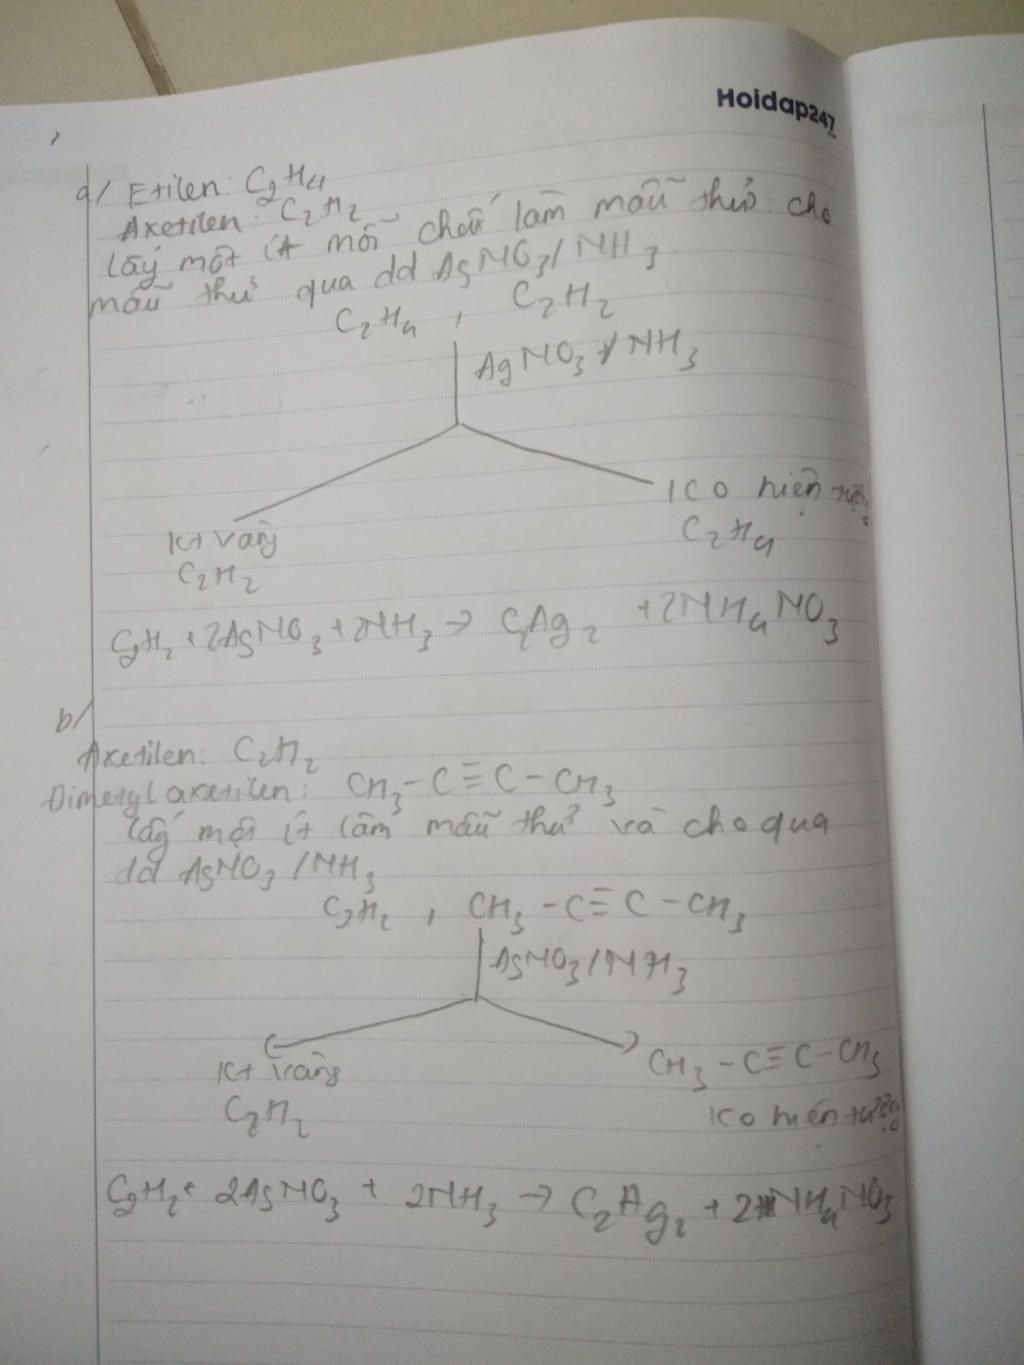 Hoidap247
a/ Etilen: C₂H₄
Axetilen: C₂H₂
lấy một ít mỗi chất làm mẫu thử: cho
mẫu thử qua dd AgNO₃/NH₃
C₂H₄, C₂H₂
AgNO₃/NH₃
Ko hiện tượng
C₂H₄
Kt vàng
C₂H₂
C₂H₂ + 2AgNO₃ + 2NH₃ → C₂Ag₂ + 2NH₄NO₃
b/
Axetilen: C₂H₂
Dimetyl axetilen: CH₃-C≡C-CH₃
lấy một ít làm mẫu thử và cho qua
dd AgNO₃/NH₃
C₂H₂, CH₃-C≡C-CH₃
AgNO₃/NH₃
Kt vàng
C₂H₂
CH₃-C≡C-CH₃
Ko hiện tượng
C₂H₂ + 2AgNO₃ + 2NH₃ → C₂Ag₂ + 2NH₄NO₃